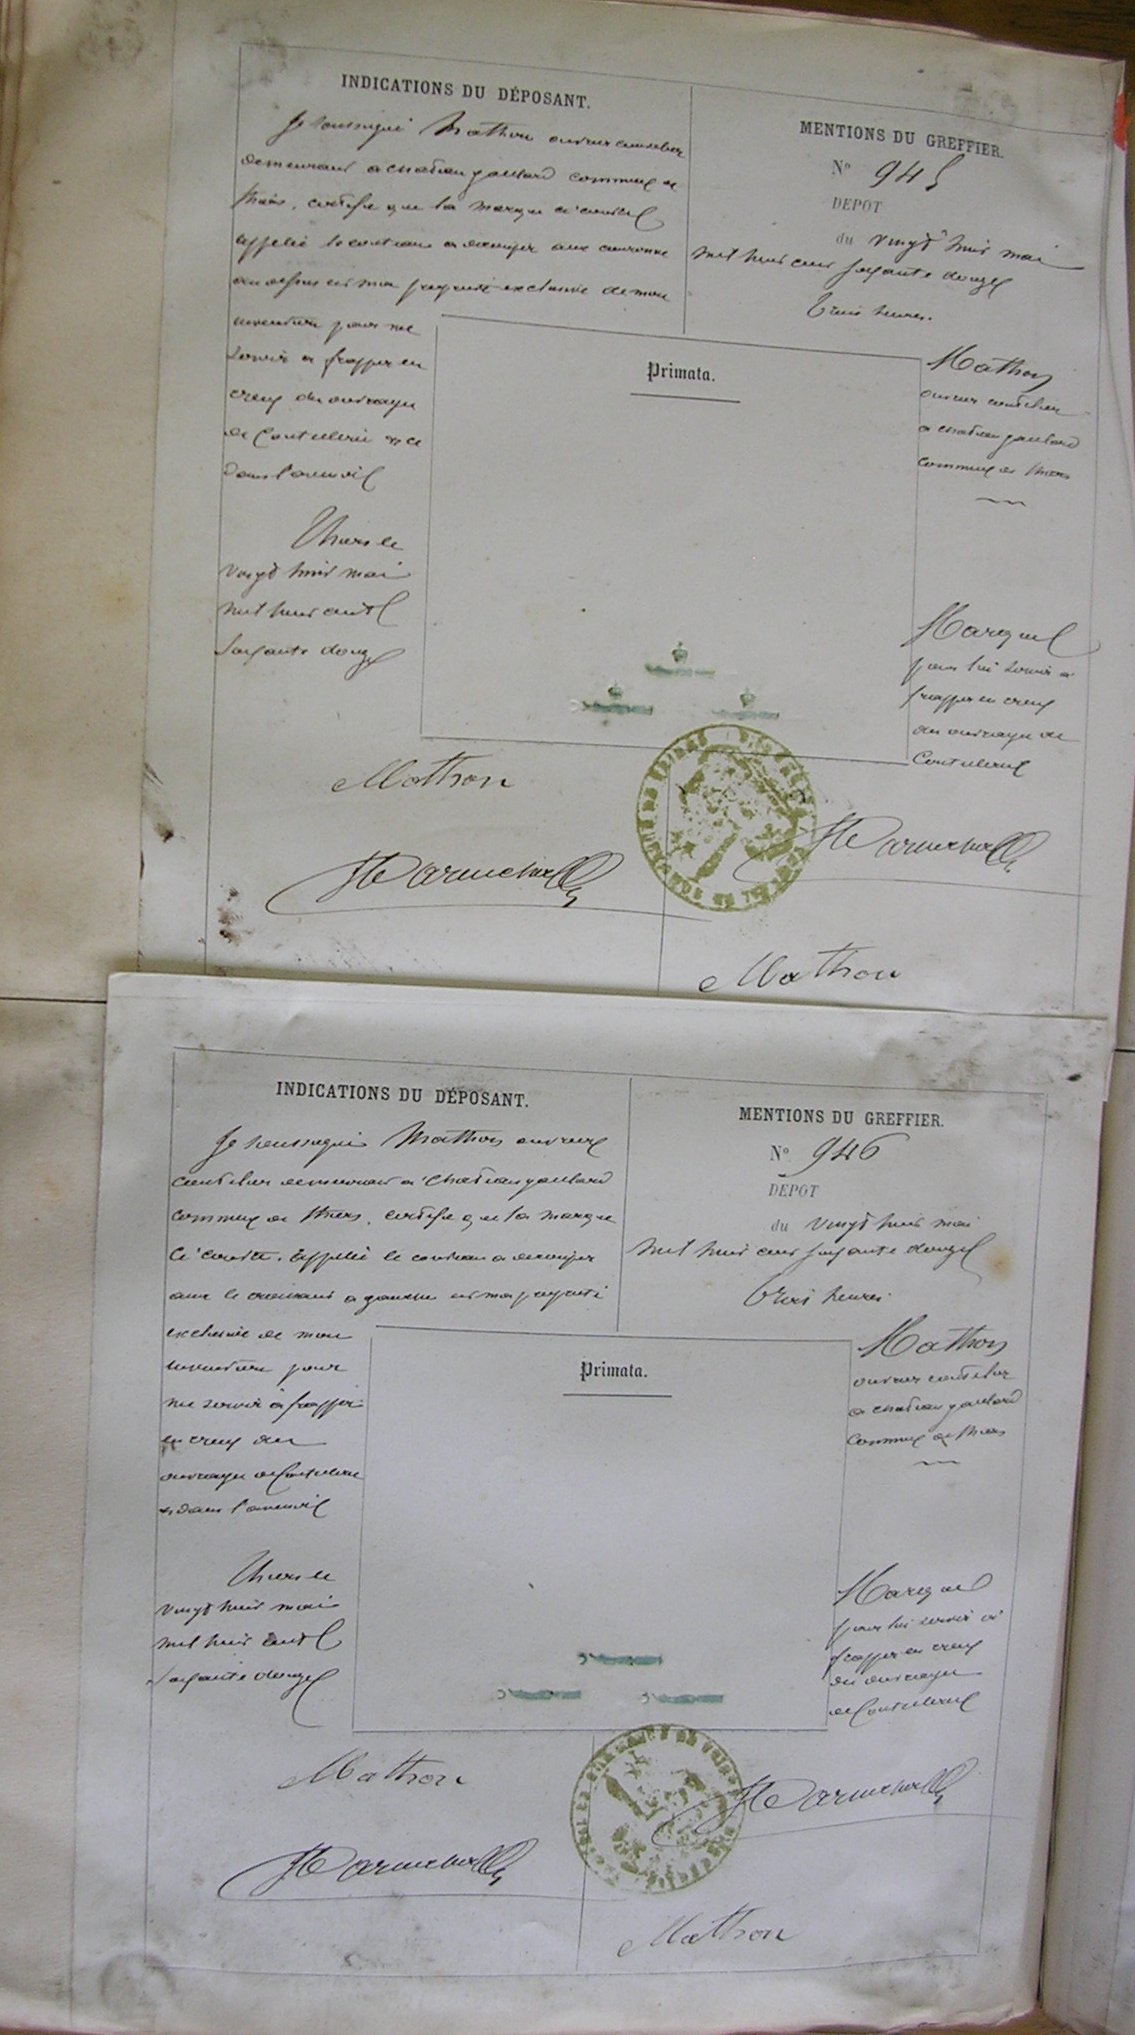 INDICATIONS DU DÉPOSANT.
Je soussigné Mathon ouvrier coutelier
demeurant a chateau gaillard commune de
thiers, certifie que la marque ci'contre
appelée le couteau a deux couronne
au dessus est ma propriété exclusive de mon
invention pour me
servir a frapper en
creux des ouvrages
de Coutellerie et ce
dans l'avenir
Thiers le
vingt huit mai
mil huit cent
soixante douze
Mathon
MENTIONS DU GREFFIER.
N° 945
DEPOT
du vingt huit mai
mil huit cent soixante douze
trois heures.
Primata.
Mathon
ouvrier coutelier
a chateau gaillard
commune de thiers
Marque
pour lui servir a
frapper en creux
des ouvrages de
Coutellerie
Mathon
INDICATIONS DU DÉPOSANT.
Je soussigné Mathon ouvrier
coutelier demeurant a chateau gaillard
commune de thiers, certifie que la marque
ci'contre. appelée le couteau a
avec le croissant a gauche est ma propriété
exclusive de mon
invention pour
me servir à frapper
en creux des
ouvrages de Coutellerie
et dans l'avenir
Thiers le
vingt huit mai
mil huit cent
soixante douze
Mathon
MENTIONS DU GREFFIER.
N° 946
DEPOT
du vingt huit mai
mil huit cent soixante douze
trois heures.
Primata.
Mathon
ouvrier coutelier
a chateau gaillard
commune de thiers
Marque
pour lui servir à
frapper en creux
des ouvrages
de Coutellerie
Mathon